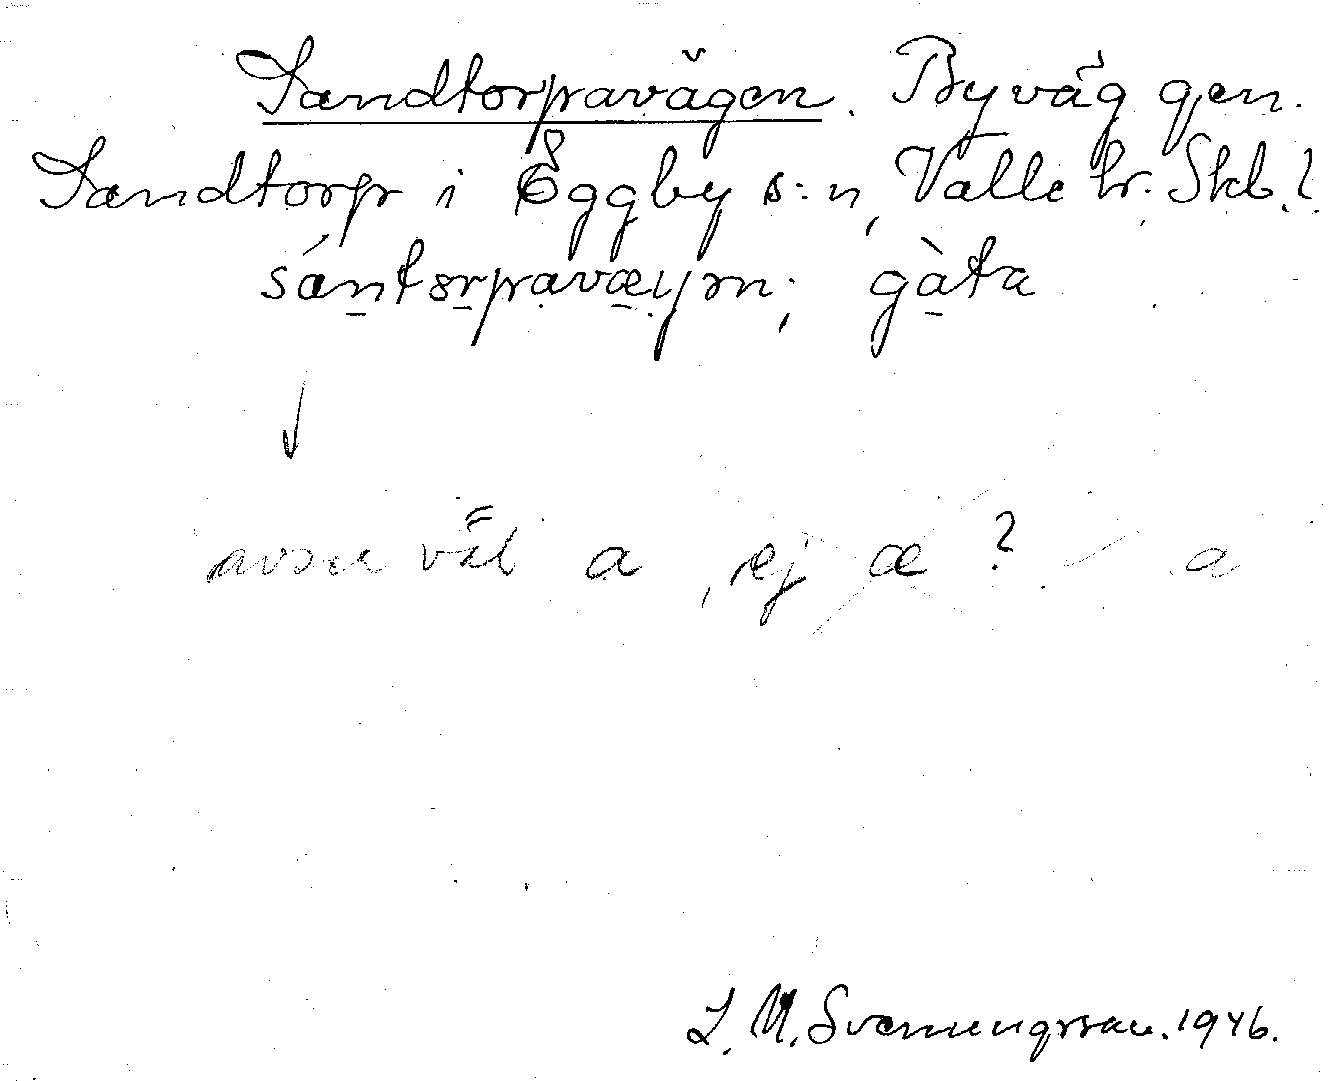 Sandtorpavägen. Byväg gen.
Sandtorp i Eggby s:n, Valle hr. Skb.l.
sántorpavæɣən; gàta
avser väl a, ej æ? a
L. M. Svenungsson. 1946.